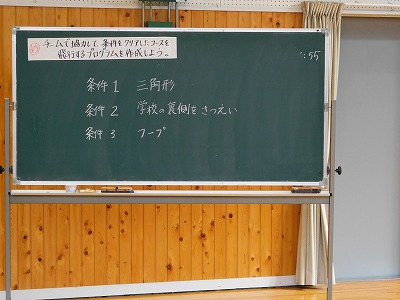 め チームで協力して、条件をクリアしたコースを
飛行するプログラムを作成しよう。
:55
条件1 三角形
条件2 学校の裏側をさつえい
条件3 フープ